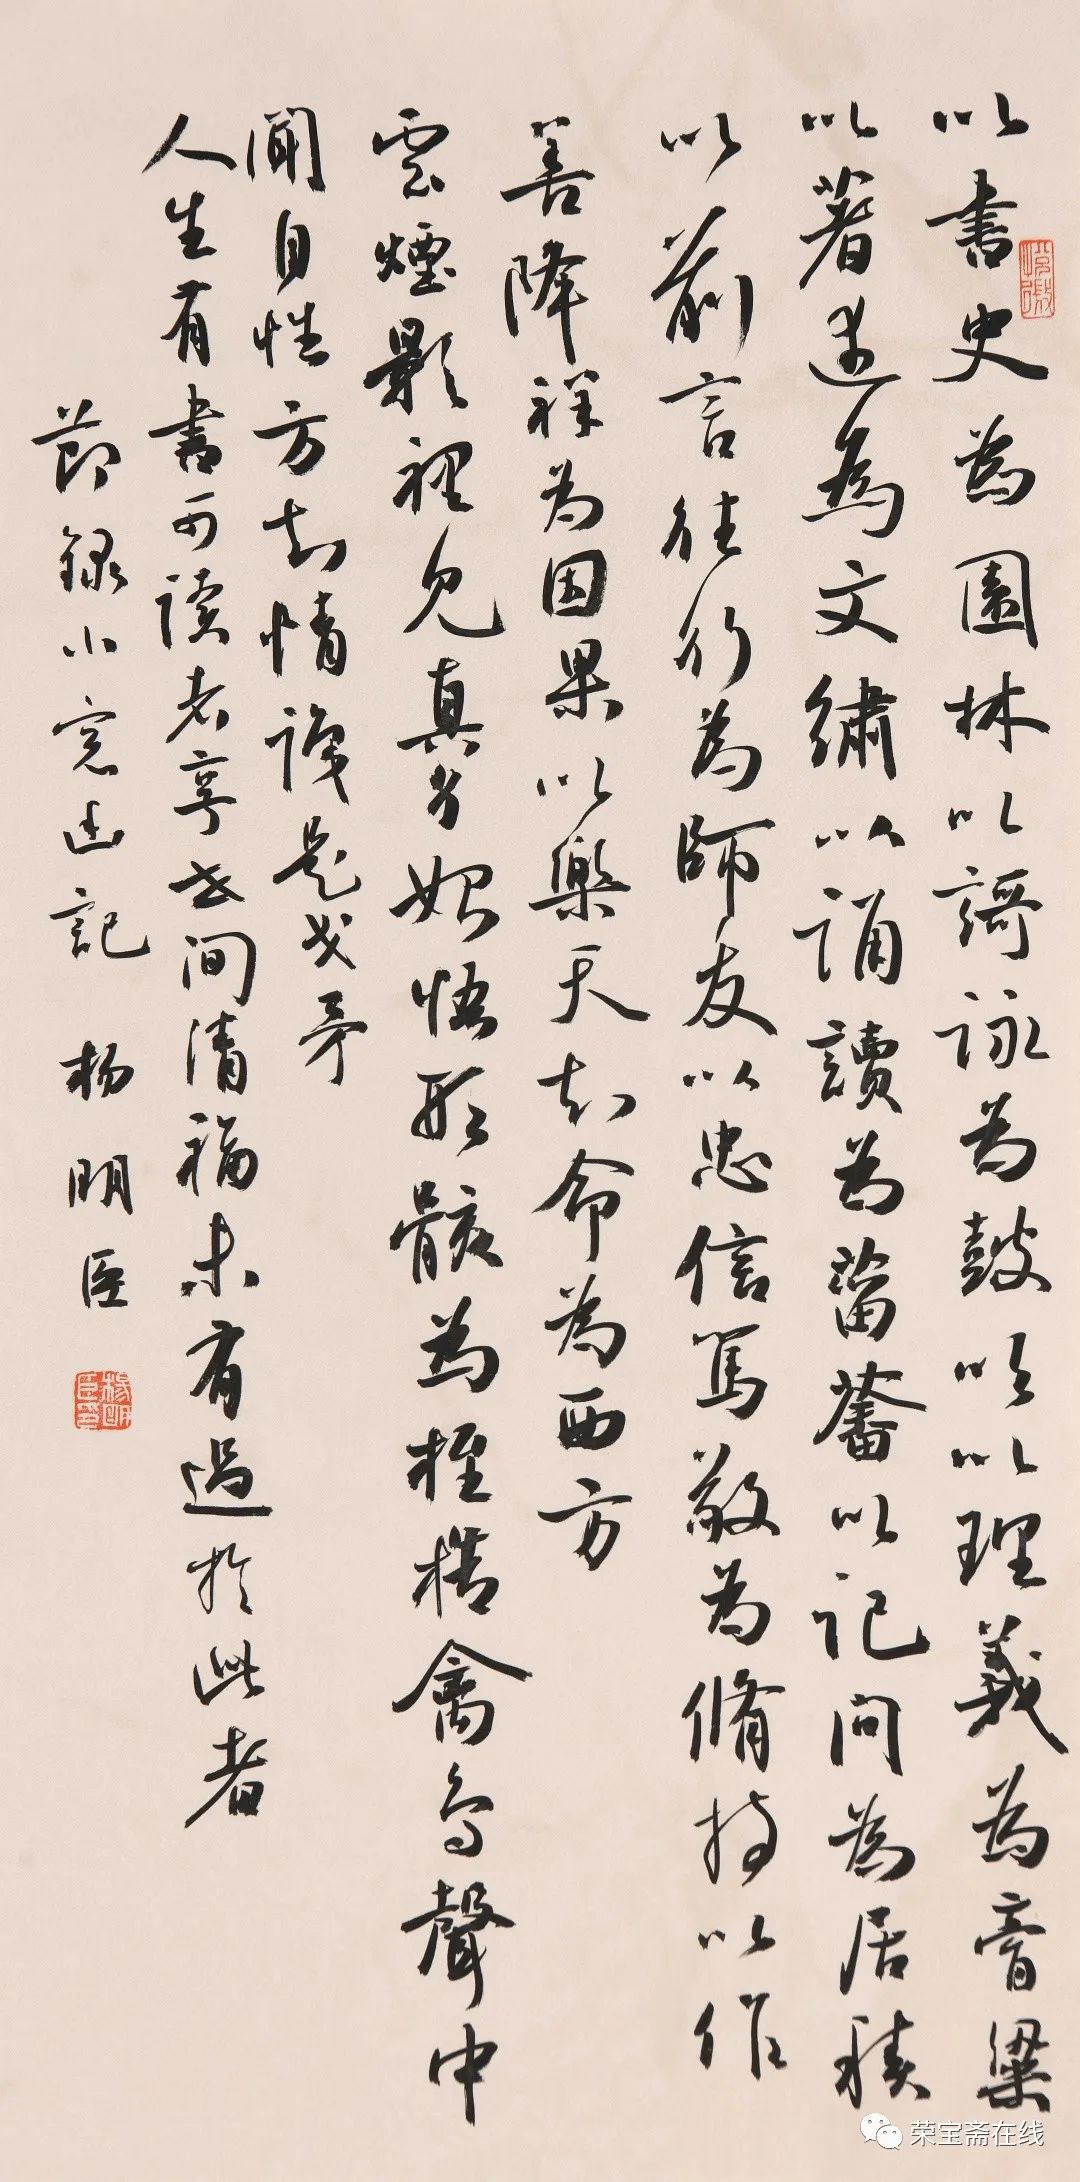 以書史為園林以謌詠為鼓吹以理義為膏粱
以著述為文繡以誦讀為菑畬以记问為居積
以前言往行為師友以忠信篤敬為脩持以作
善降祥為因果以樂天知命為西方
雲煙影裡見真身始悟形骸為桎梏禽鸟聲中
聞自性方知情識是戈矛
人生有書可读者享世间清福未有過於此者
節録小窓幽記 杨明臣
楊明臣印
荣宝斋在线